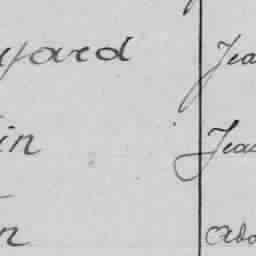 yard Jea
in Jea
n Ado